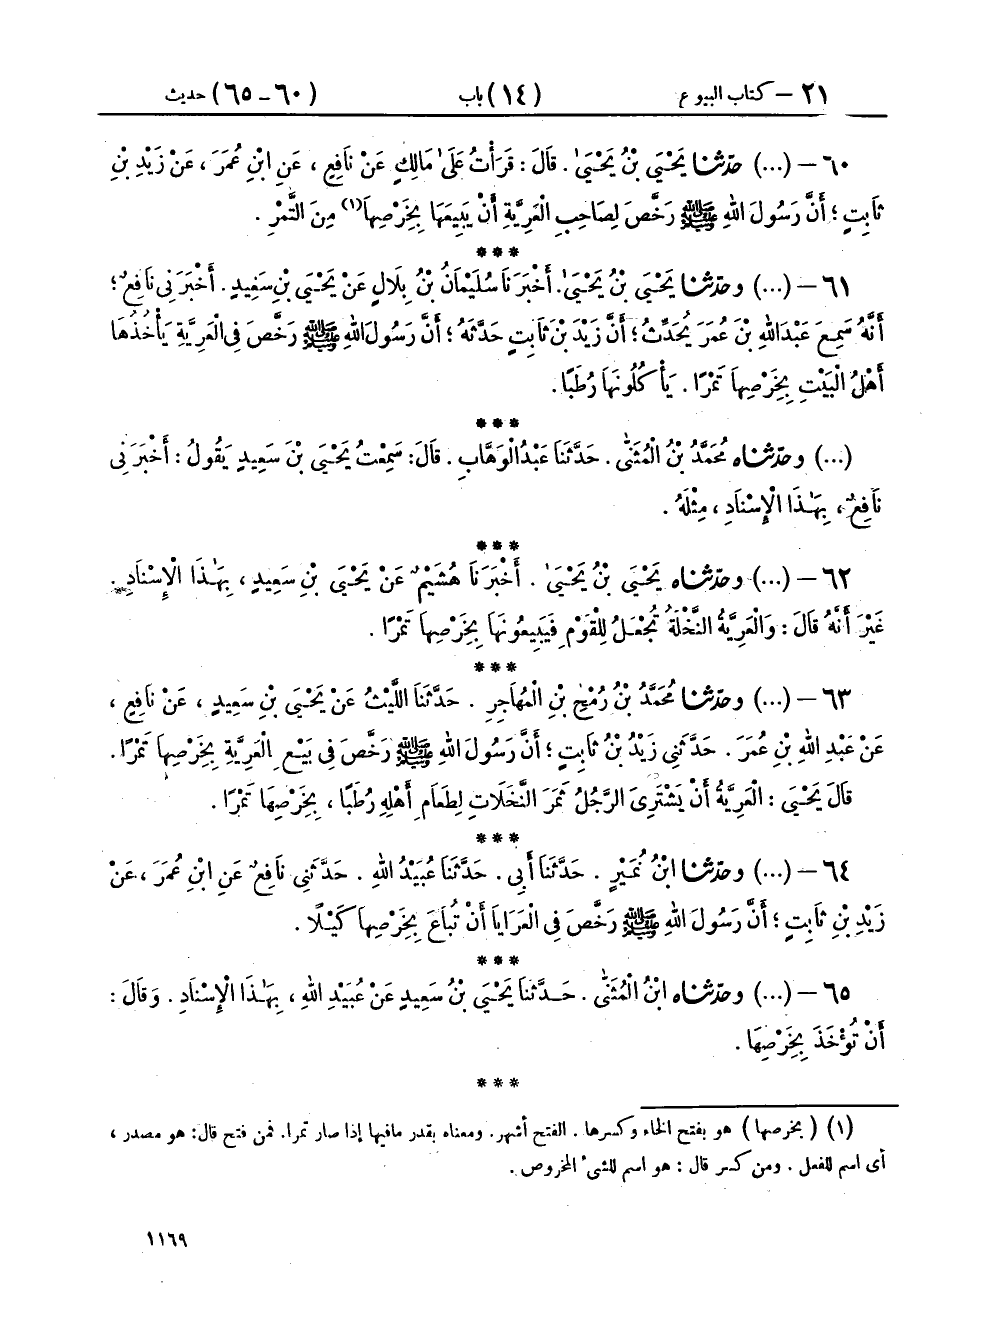 ٢١ – كتاب البيوع (١٤) باب (٦٠ – ٦٥) حديث
٦٠ – (...) حدّثنا يَحْيَى بْنُ يَحْيَىٰ . قَالَ : قَرَأْتُ عَلَىٰ مَالِكٍ عَنْ نَافِعٍ ، عَنِ ابْنِ عُمَرَ ، عَنْ زَيْدِ بْنِ
ثَابِتٍ ؛ أَنَّ رَسُولَ اللهِ ﷺ رَخَّصَ لِصَاحِبِ الْعَرِيَّةِ أَنْ يَبِيعَهَا بِخَرْصِهَا(١) مِنَ التَّمْرِ .
***
٦١ – (...) وحدّثنا يَحْيَى بْنُ يَحْيَىٰ. أَخْبَرَنَا سُلَيْمَانُ بْنُ بِلَالٍ عَنْ يَحْيَى بْنِ سَعِيدٍ. أَخْبَرَنِي نَافِعٌ ؛
أَنَّهُ سَمِعَ عَبْدَ اللهِ بْنَ عُمَرَ يُحَدِّثُ؛ أَنَّ زَيْدَ بْنَ ثَابِتٍ حَدَّثَهُ ؛ أَنَّ رَسُولَ اللهِ ﷺ رَخَّصَ فِي الْعَرِيَّةِ يَأْخُذُهَا
أَهْلُ الْبَيْتِ بِخَرْصِهَا تَمْرًا . يَأْكُلُونَهَا رُطَبًا .
***
(...) وحدّثناه مُحَمَّدُ بْنُ الْمُثَنَّى . حَدَّثَنَا عَبْدُ الْوَهَّابِ . قَالَ: سَمِعْتُ يَحْيَى بْنَ سَعِيدٍ يَقُولُ : أَخْبَرَنِي
نَافِعٌ ، بِهَٰذَا الْإِسْنَادِ ، مِثْلَهُ .
***
٦٢ – (...) وحدّثناه يَحْيَى بْنُ يَحْيَىٰ . أَخْبَرَنَا هُشَيْمٌ عَنْ يَحْيَى بْنِ سَعِيدٍ ، بِهَٰذَا الْإِسْنَادِ .
غَيْرَ أَنَّهُ قَالَ : وَالْعَرِيَّةُ النَّخْلَةُ تُجْعَلُ لِلْقَوْمِ فَيَبِيعُونَهَا بِخَرْصِهَا تَمْرًا .
***
٦٣ – (...) وحدّثنا مُحَمَّدُ بْنُ رُمْحِ بْنِ الْمُهَاجِرِ . حَدَّثَنَا اللَّيْثُ عَنْ يَحْيَى بْنِ سَعِيدٍ ، عَنْ نَافِعٍ ،
عَنْ عَبْدِ اللهِ بْنِ عُمَرَ . حَدَّثَنِي زَيْدُ بْنُ ثَابِتٍ ؛ أَنَّ رَسُولَ اللهِ ﷺ رَخَّصَ فِي بَيْعِ الْعَرِيَّةِ بِخَرْصِهَا تَمْرًا .
قَالَ يَحْيَى : الْعَرِيَّةُ أَنْ يَشْتَرِيَ الرَّجُلُ ثَمَرَ النَّخَلَاتِ لِطَعَامِ أَهْلِهِ رُطَبًا ، بِخَرْصِهَا تَمْرًا .
***
٦٤ – (...) وحدّثنا ابْنُ نُمَيْرٍ . حَدَّثَنَا أَبِي . حَدَّثَنَا عُبَيْدُ اللهِ . حَدَّثَنِي نَافِعٌ عَنِ ابْنِ عُمَرَ ، عَنْ
زَيْدِ بْنِ ثَابِتٍ ؛ أَنَّ رَسُولَ اللهِ ﷺ رَخَّصَ فِي الْعَرَايَا أَنْ تُبَاعَ بِخَرْصِهَا كَيْلًا .
***
٦٥ – (...) وحدّثناه ابْنُ الْمُثَنَّى . حَدَّثَنَا يَحْيَى بْنُ سَعِيدٍ عَنْ عُبَيْدِ اللهِ ، بِهَٰذَا الْإِسْنَادِ . وَقَالَ :
أَنْ تُؤْخَذَ بِخَرْصِهَا .
***
(١) (بخرصها) هو بفتح الخاء وكسرها . الفتح أشهر. ومعناه بقدر مافيها إذا صار تمرا. فمن فتح قال: هو مصدر ،
أى اسم للفعل . ومن كسر قال : هو اسم للشىء المخروص .
١١٦٩